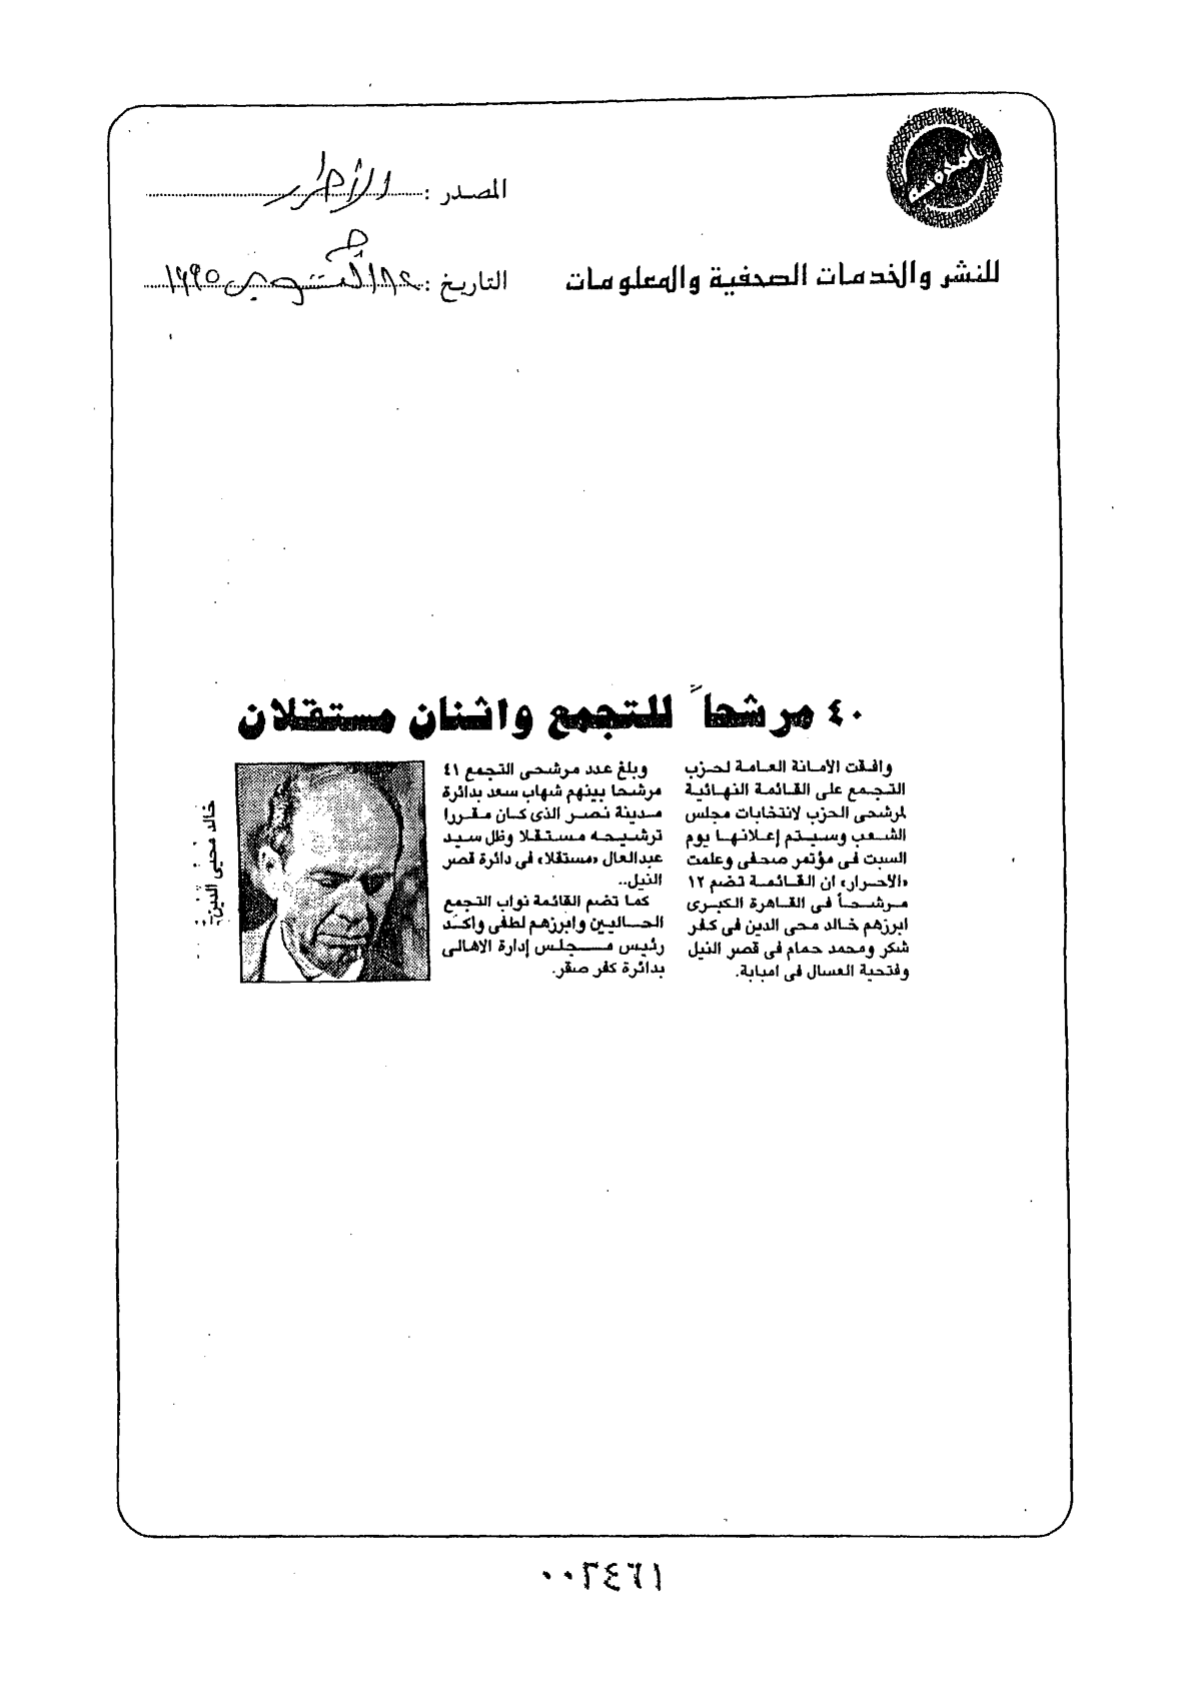 المصدر : الأحرار
للنشر والخدمات الصحفية والمعلومات
التاريخ : أكتوبر ١٩٩٥
٤٠ مرشحاً للتجمع واثنان مستقلان
وافقت الأمانة العامة لحزب
التجمع على القائمة النهائية
لمرشحى الحزب لانتخابات مجلس
الشعب وسيتم إعلانها يوم
السبت فى مؤتمر صحفى وعلمت
«الأحرار» ان القائمة تضم ١٢
مرشحاً فى القاهرة الكبرى
ابرزهم خالد محى الدين فى كفر
شكر ومحمد حمام فى قصر النيل
وفتحية العسال فى امبابة.
وبلغ عدد مرشحى التجمع ٤١
مرشحا بينهم شهاب سعد بدائرة
مدينة نصر الذى كان مقررا
ترشيحه مستقلا وظل سيد
عبدالعال «مستقلا» فى دائرة قصر
النيل..
كما تضم القائمة نواب التجمع
الحاليين وابرزهم لطفى واكد
رئيس مجلس إدارة الاهالى
بدائرة كفر صقر.
خالد محيى الدين
٠٠٢٤٦١